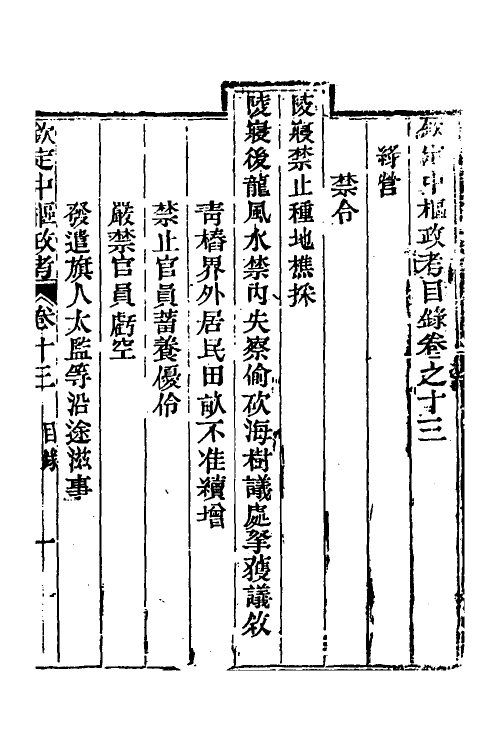 欽定中樞政考目錄卷之十三
綠營
禁令
陵寢禁止種地樵採
陵寢後龍風水禁內失察偷砍海樹議處拏獲議敘
靑樁界外居民田畝不准續增
禁止官員蓄養優伶
嚴禁官員虧空
發遣旗人太監等沿途滋事
欽定中樞政考 卷十三 目錄 一